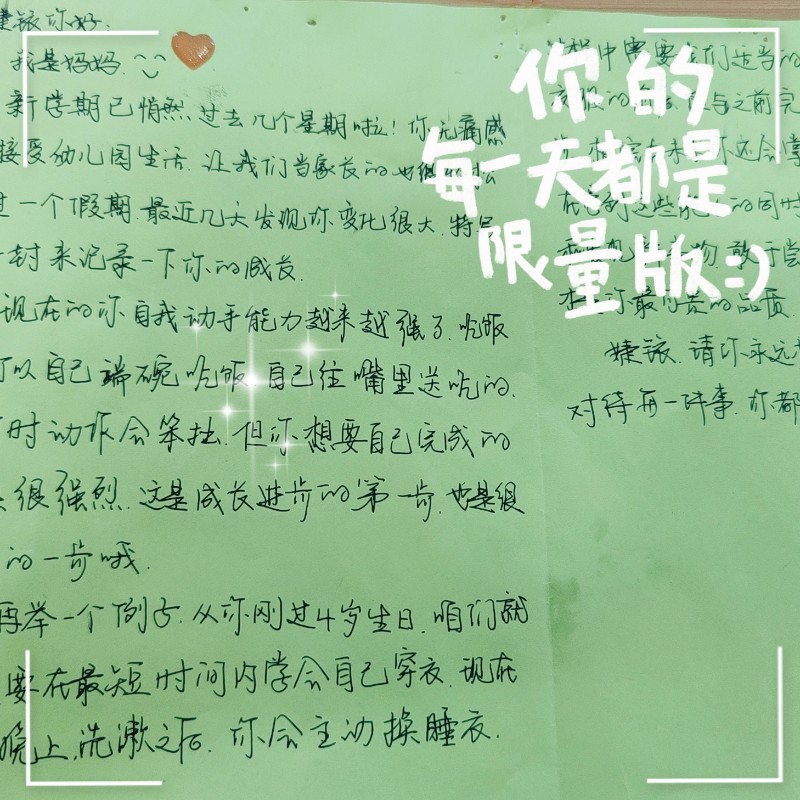 你好.
我是妈妈.
新学期已悄然过去几个星期啦！你无痛感
接受幼儿园生活.让我们当家长的也
过一个假期.最近几天发现你变化很大.特
一封来记录一下你的成长.
现在的你自我动手能力越来越强了.吃饭
可以自己端碗吃饭.自己往嘴里送吃的.
时动作会笨拙.但你想要自己完成的
很强烈.这是成长进步的第一步.也是很
的一步哦.
再举一个例子.从你刚过4岁生日.咱们就
要在最短时间内学会自己穿衣.现在
晚上.洗漱之后.你会主动换睡衣.
你的
每一天都是
限量版:)
中需要我们适当的
衣服的 与之前完
还会掌
的同时
物.敢于尝
你最 的品质.
请你永远
对待每一件事.你都